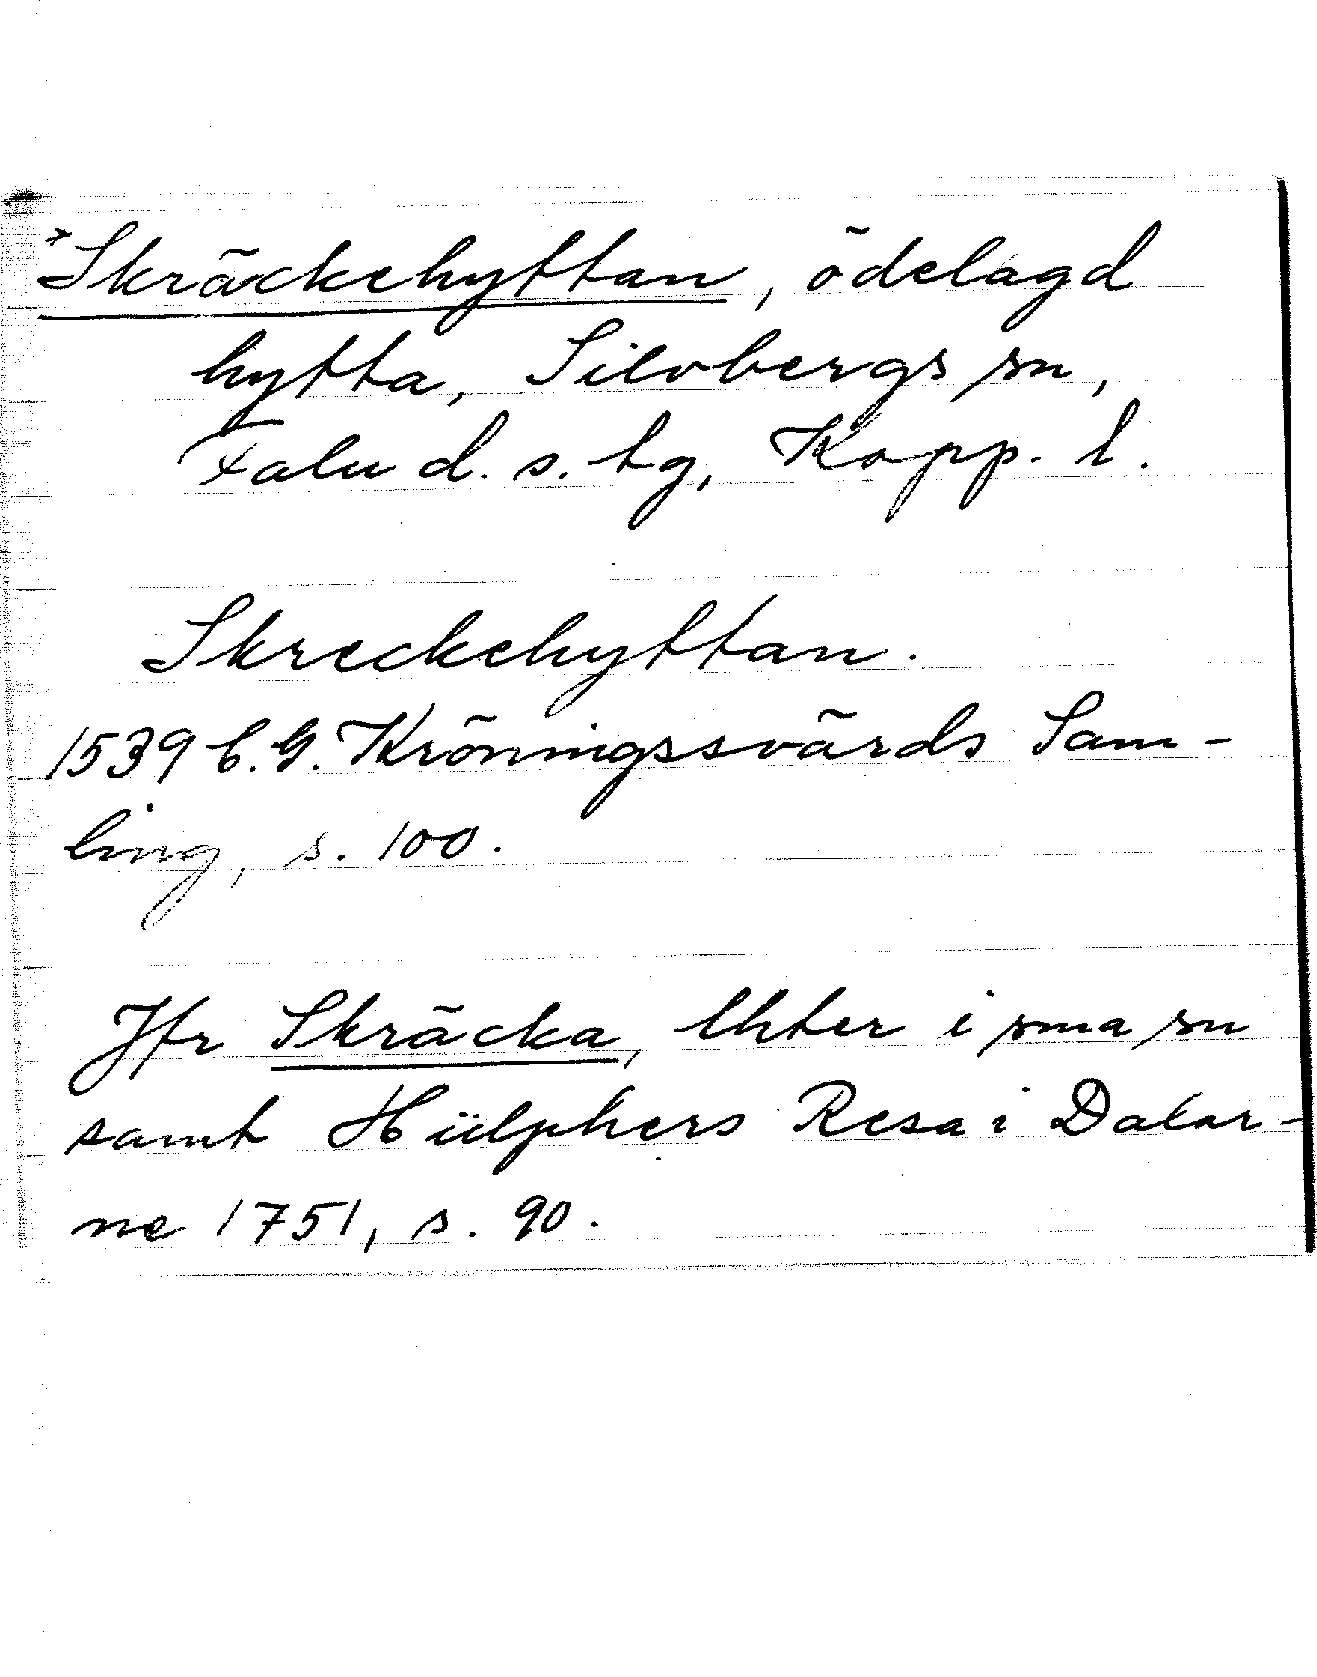 *Skräckehyttan, ödelagd
hytta, Silvbergs sn,
Falu d. s. tg, Kopp. l.
Skreckehyttan.
1539 C. G. Kröningssvärds Sam-
ling, s. 100.
Jfr Skräcka, lhter i sma sn
samt Hülphers Resa i Dalar-
ne 1751, s. 90.